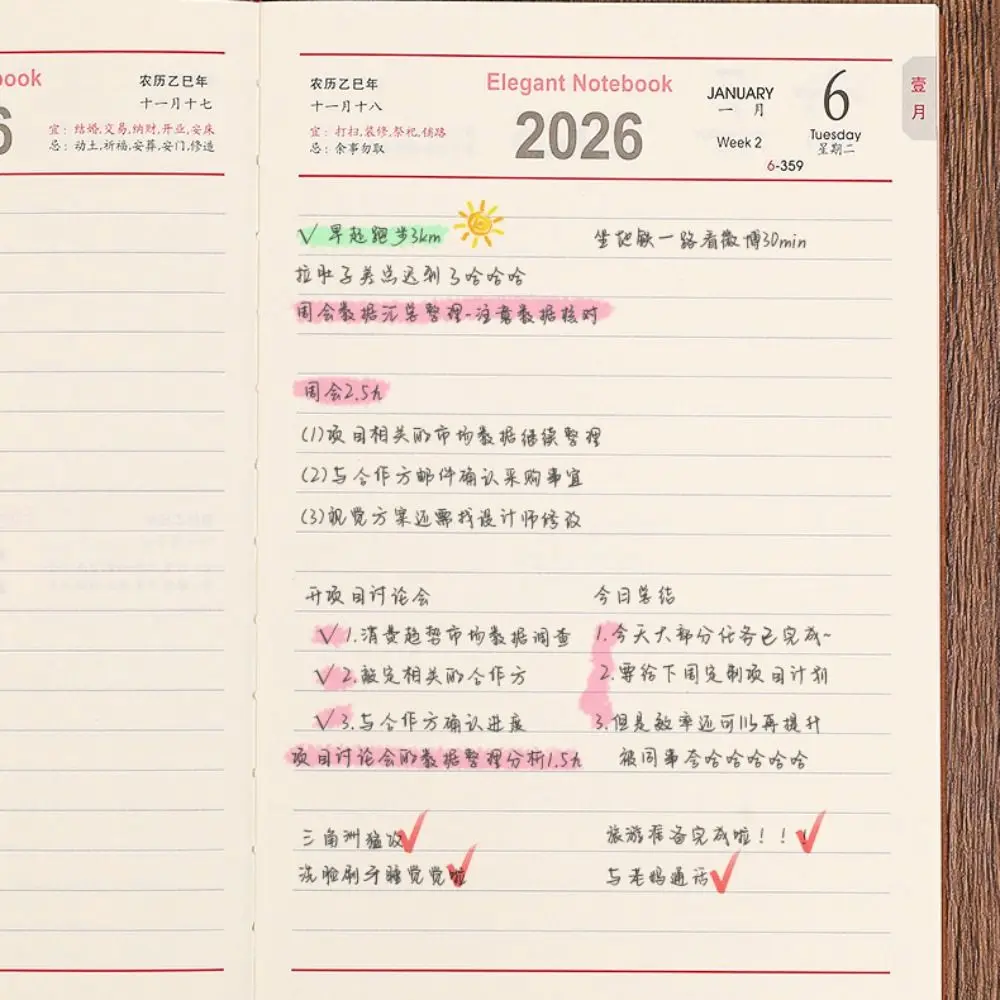 book
6
农历乙巳年
十一月十七
宜: 结婚,交易,纳财,开业,安床
忌: 动土,祈福,安葬,安门,修造
农历乙巳年
十一月十八
宜: 打扫,装修,祭祀,铺路
忌: 余事勿取
Elegant Notebook
2026
JANUARY
一 月
Week 2
6
Tuesday
星期二
6-359
壹月
√ 早起跑步3km
坐地铁一路看微博30min
拉肚子差点迟到了哈哈哈
周会数据汇总整理-注意数据核对
周会2.5h
(1)项目相关的市场数据继续整理
(2)与合作方邮件确认采购事宜
(3)视觉方案还需找设计师修改
开项目讨论会
√ 1.消费趋势市场数据调查
√ 2.敲定相关的合作方
√ 3.与合作方确认进度
项目讨论会的数据整理分析1.5h
今日总结
1.今天大部分任务已完成~
2.要给下周定制项目计划
3.但是效率还可以再提升
被同事夸哈哈哈哈哈哈
三角洲猛攻
洗脸刷牙睡觉觉啦
旅游准备完成啦！！！
与老妈通话